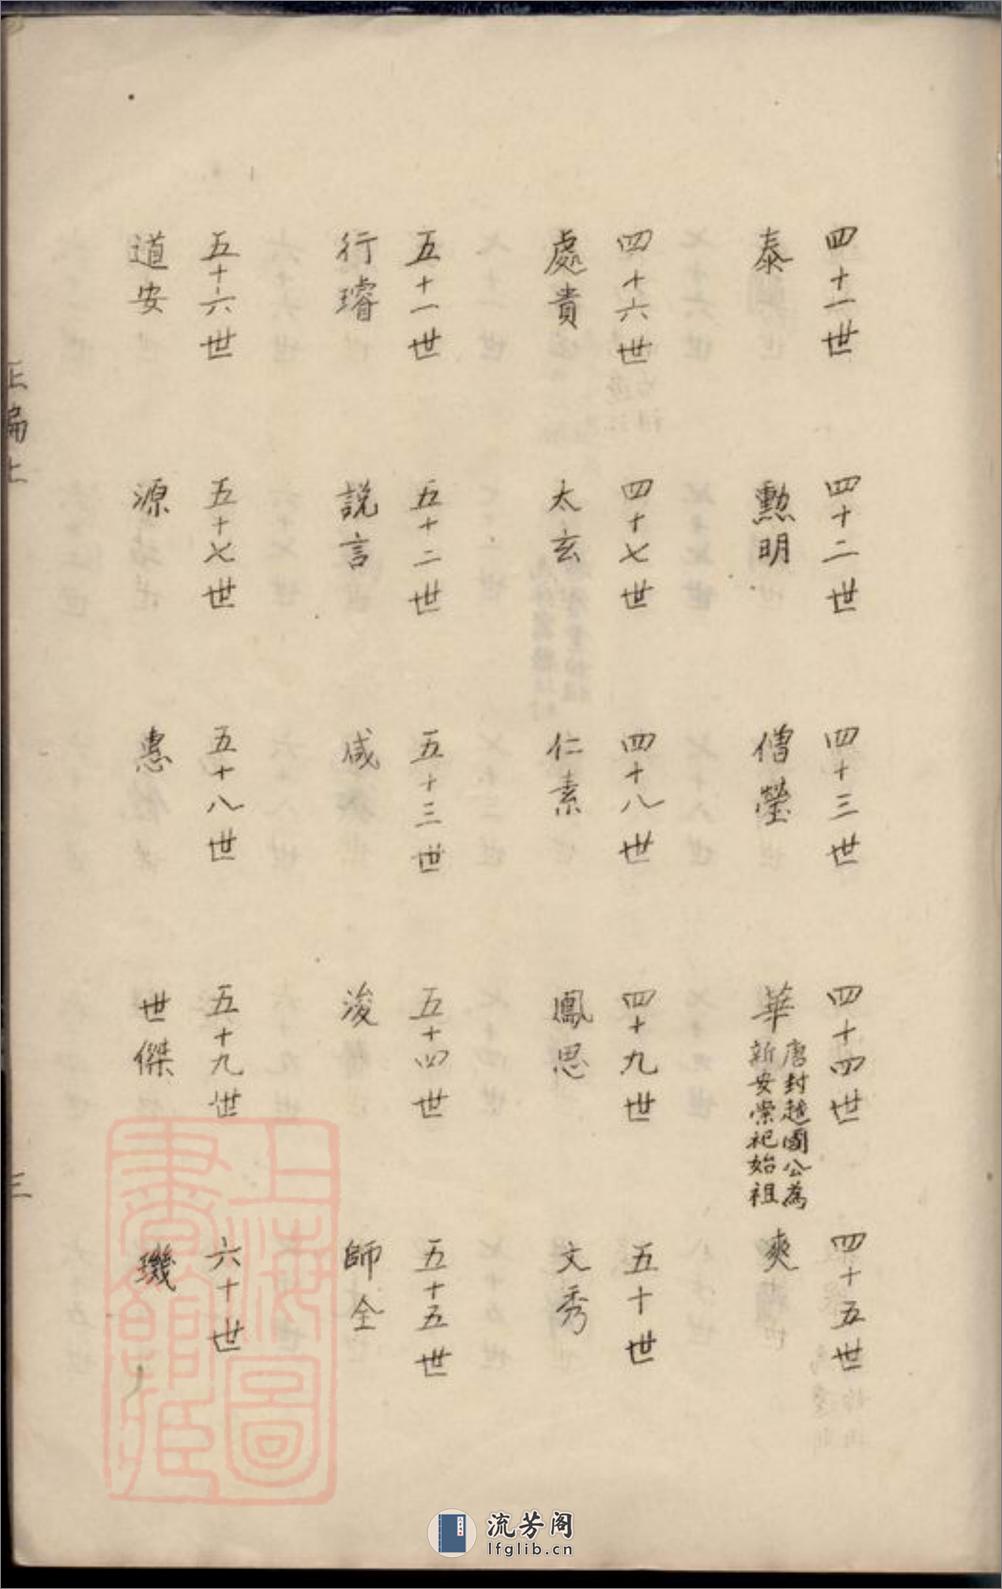 四十一世 四十二世 四十三世 四十四世 四十五世
泰 勲明 僧瑩 華 唐封越國公為新安崇祀始祖 爽
四十六世 四十七世 四十八世 四十九世 五十世
處貴 太玄 仁素 鳳思 文秀
五十一世 五十二世 五十三世 五十四世 五十五世
行璿 説言 咸 浚 師全
五十六世 五十七世 五十八世 五十九世 六十世
道安 源 惠 世傑 璣
正編上 三
上海圖書館藏
流芳阁
lfglib.cn